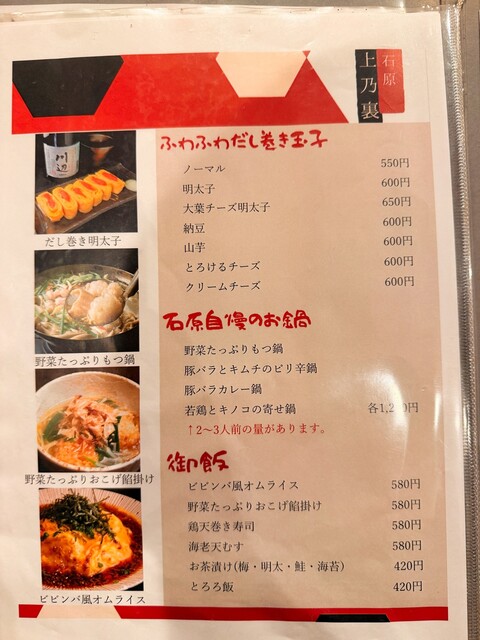 石原
上乃裏
川辺
ふわふわだし巻き玉子
ノーマル 550円
明太子 600円
大葉チーズ明太子 650円
納豆 600円
山芋 600円
とろけるチーズ 600円
クリームチーズ 600円
だし巻き明太子
石原自慢のお鍋
野菜たっぷりもつ鍋
豚バラとキムチのピリ辛鍋
豚バラカレー鍋
若鶏とキノコの寄せ鍋
↑2~3人前の量があります。
野菜たっぷりもつ鍋
御飯
ビビンバ風オムライス 580円
野菜たっぷりおこげ餡掛け 580円
鶏天巻き寿司 580円
海老天むす 580円
お茶漬け(梅・明太・鮭・海苔) 420円
とろろ飯 420円
野菜たっぷりおこげ餡掛け
ビビンバ風オムライス